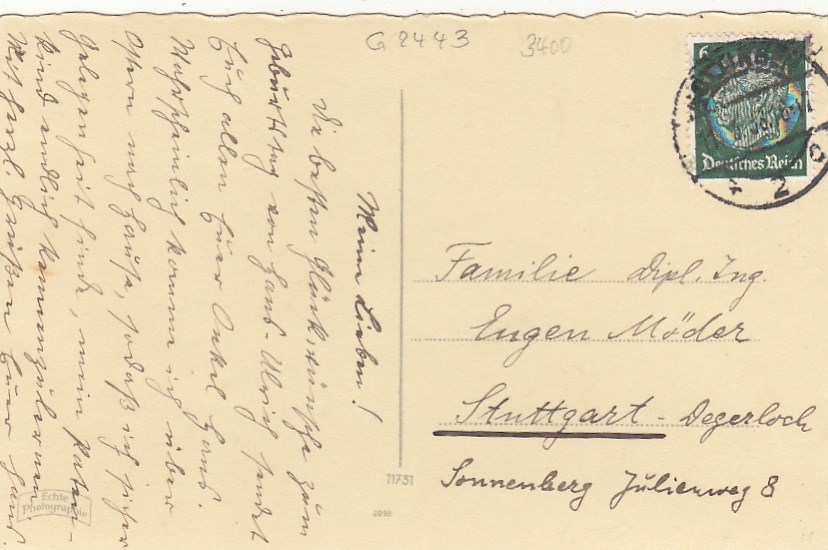 G 2443
3400
6
GÖTTINGEN
Deutsches Reich
2
Meine Lieben!
Die besten Glückwünsche zum
Geburtstag von Hans-Ulrich sendet
Euch allen Euer Onkel Hans.
Wahrscheinlich komme ich über
Ostern nach Hause, sodaß ich sicher
Gelegenheit finde, mein Paten-
kind endlich kennenzulernen
Mit herzl. Grüßen Euer Hans.
Familie Dipl. Ing.
Eugen Möder
Stuttgart - Degerloch
Sonnenberg Julienweg 8
11751
Echte
Photographie